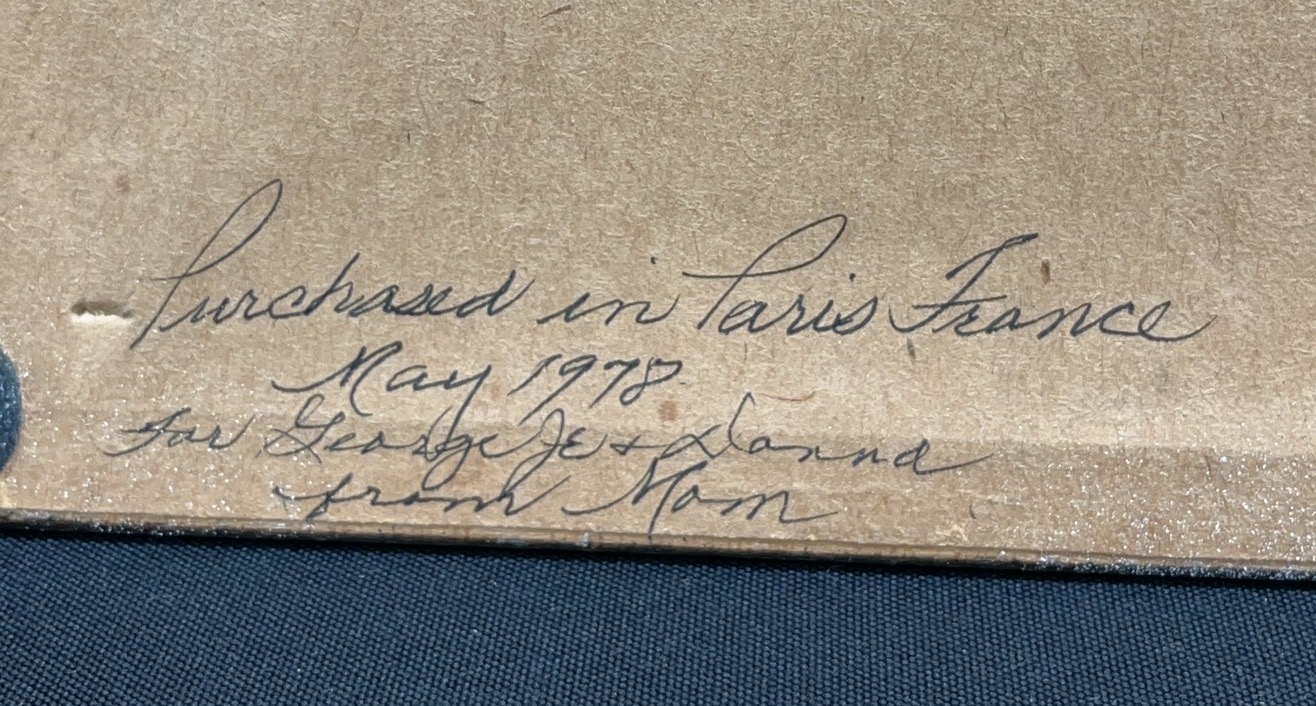 Purchased in Paris France
May 1978
for George Jr + Donna
from Mom